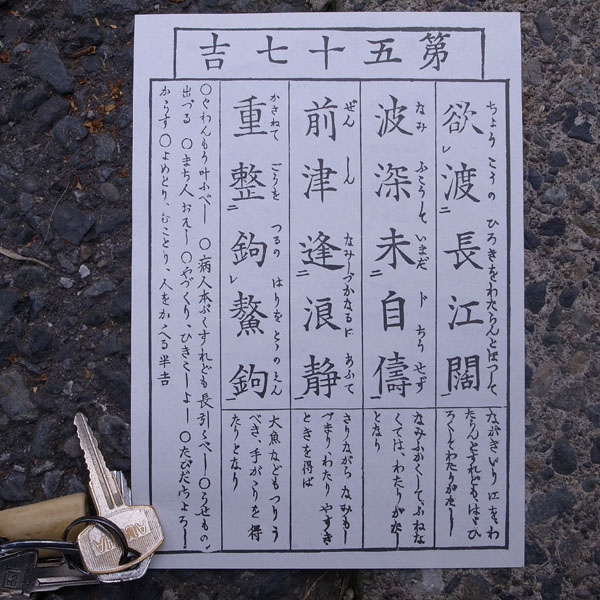 第五十七吉
欲レ渡二長江闊一
ながきいり江をわたらんとすれども、はゞひろくしてわたりがたし
波深未二自儔一
なみふこうしていまだ
なみふかくしてふねなくては、わたりがたしとなり
前津逢二浪静一
ぜんしんなみしづかなるにあふて
さりながらなみもしづまり、わたりやすきときを得ば
重整二鉤レ鰲鉤一
かさねてごうをつるのはりをとゝのえん
大魚などもつりうべき、手がゝりを得たりとなり
○ぐわんもう叶ふべし ○病人本ぷくすれども長引くべし ○うせもの、
出づる ○まち人おえし ○やづくり、ひきこしよし ○たびだちよろし
からず ○よめとり、むことり、人をかゝへる半吉